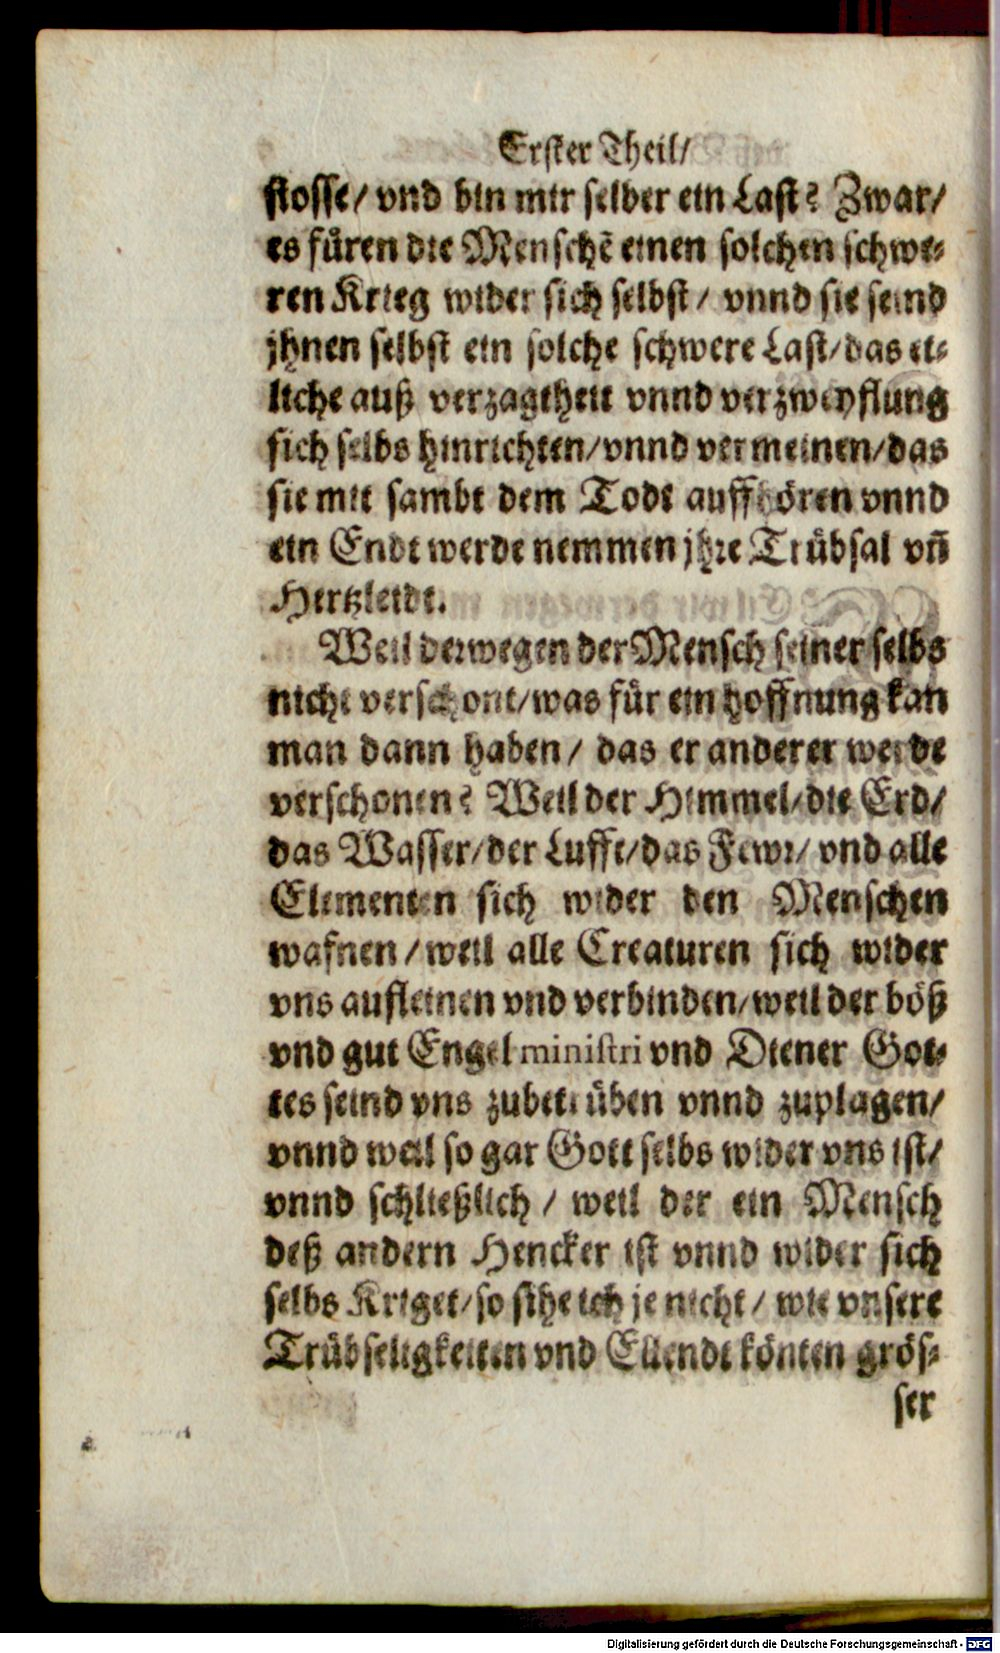 Erster Theil/
stosse/ vnd bin mir selber ein Last? Zwar/
es füren die Menschē einen solchen schwe-
ren Krieg wider sich selbst/ vnnd sie seind
jhnen selbst ein solche schwere Last/das et-
liche auß verzagtheit vnnd verzweyflung
sich selbs hinrichten/vnnd vermeinen/das
sie mit sambt dem Todt auffhören vnnd
ein Endt werde nemmen jhre Trübsal vn̄
Hertzleidt.
Weil derwegen der Mensch seiner selbs
nicht verschont/was für ein hoffnung kan
man dann haben/ das er anderer werde
verschonen? Weil der Himmel/die Erd/
das Wasser/der Lufft/das Fewr/ vnd alle
Elementen sich wider den Menschen
wafnen/weil alle Creaturen sich wider
vns aufleinen vnd verbinden/weil der böß
vnd gut Engel ministri vnd Diener Got-
tes seind vns zubetrüben vnnd zuplagen/
vnnd weil so gar Gott selbs wider vns ist/
vnnd schließlich/ weil der ein Mensch
deß andern Hencker ist vnnd wider sich
selbs Krieget/so sihe ich je nicht/ wie vnsere
Trübseligkeiten vnd Ellendt könten grös-
ser
Digitalisierung gefördert durch die Deutsche Forschungsgemeinschaft - DFG